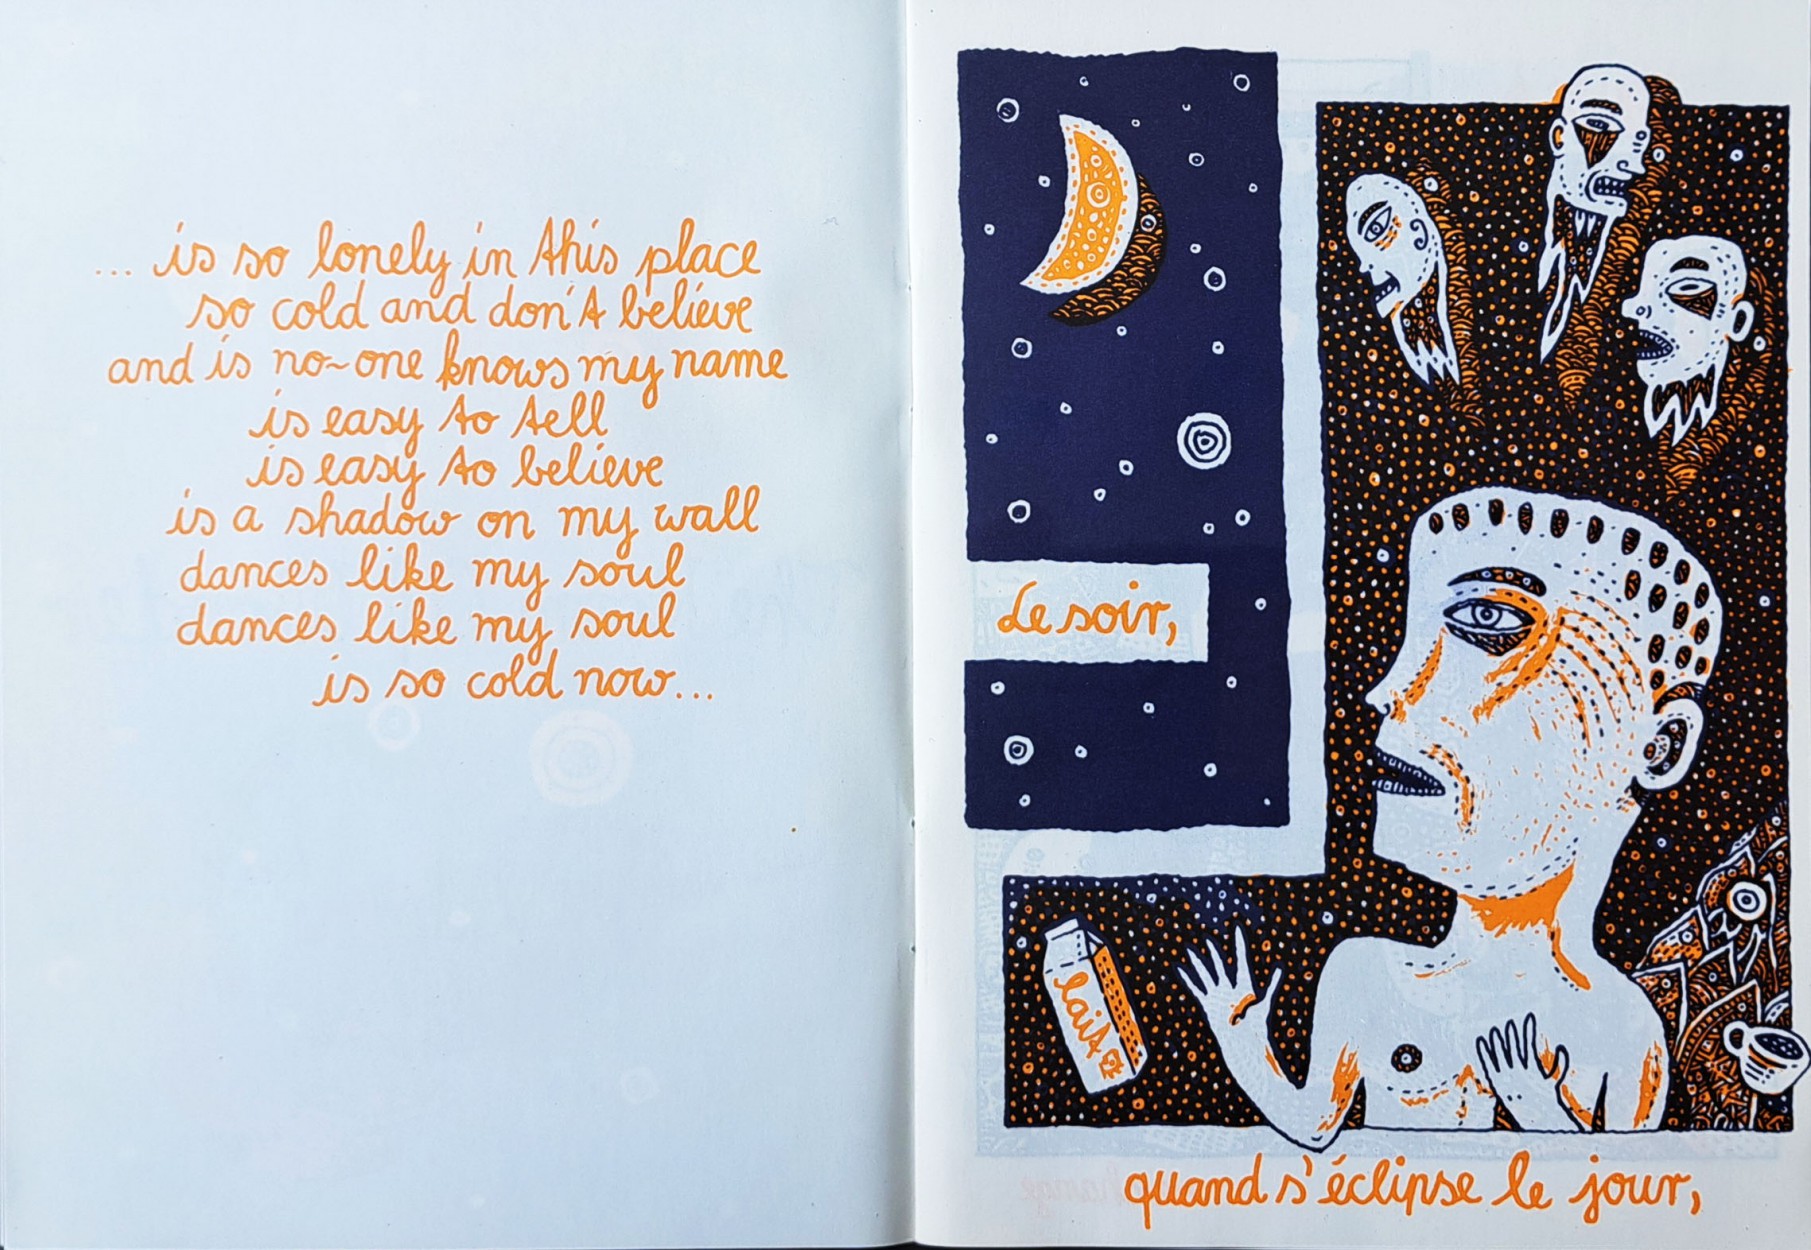 ... is so lonely in this place
so cold and don't believe
and is no-one knows my name
is easy to tell
is easy to believe
is a shadow on my wall
dances like my soul
dances like my soul
is so cold now...
Le soir,
lait
quand s'éclipse le jour,